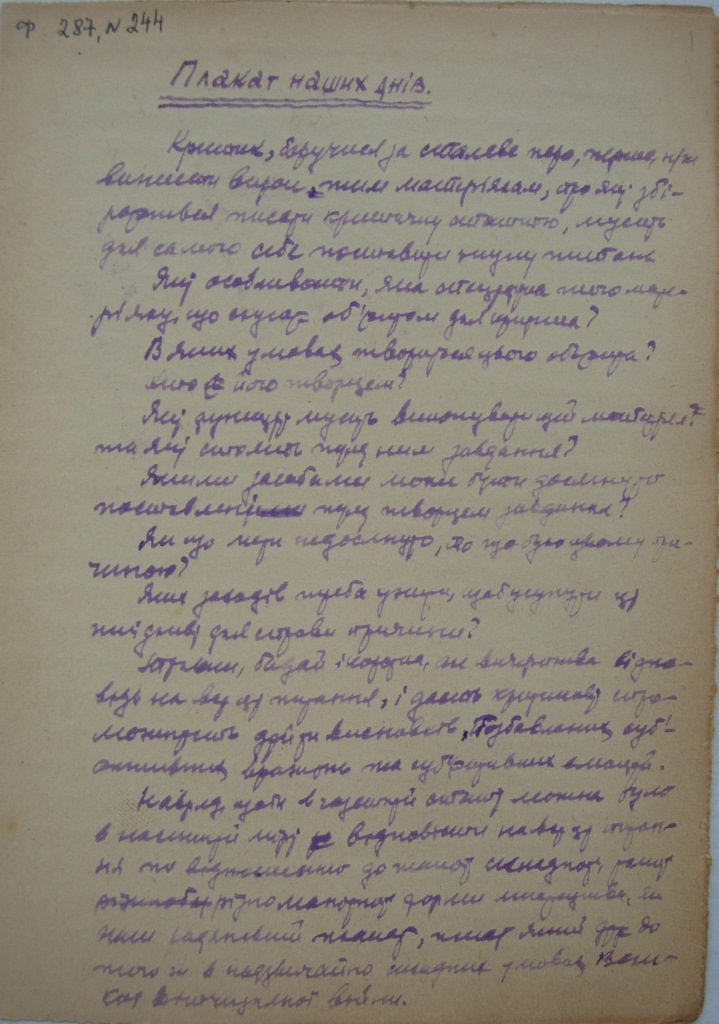 Ф 287, N 244
1
Плакат наших днів.
Критик, беручися за сталеве перо, перше, ніж
винести вирок тим матеріялам, про які збі-
рається писати критичну статтю, мусить
для самого себе поставити низку питань
Які особливости, яка специфіка того мате-
ріялу, що служить об'єктом для критика?
В яких умовах твориться цього об'єкта?
Хто є його творцем?
Які функції мусить виконувати цей матеріял?
та які стоять перед ним завдання?
Якими засобами може бути досягнуто
поставлені перед творцем завдання?
Як що мети недосягнуто, то що було цьому при-
чиною?
Яких заходів треба ужити, щоб усунути ці
шкідливі для справи причини?
бодай і коротка, але вичерпна відпо-
відь на всі ці питання, і дасть критикові спро-
можність дійти висновків, позбавлених суб'-
єктивних вражень та суб'єктивних емоцій.
Навряд, щоби в газетній статті можна було
в повній мірі відповісти на всі ці питан-
ня по відношенню до такої складної,
різноманітної форми мистецтва, як
наш радянський плакат, плакат який до
того ж в надзвичайно складних умовах Вели-
кої Вітчизняної війни.